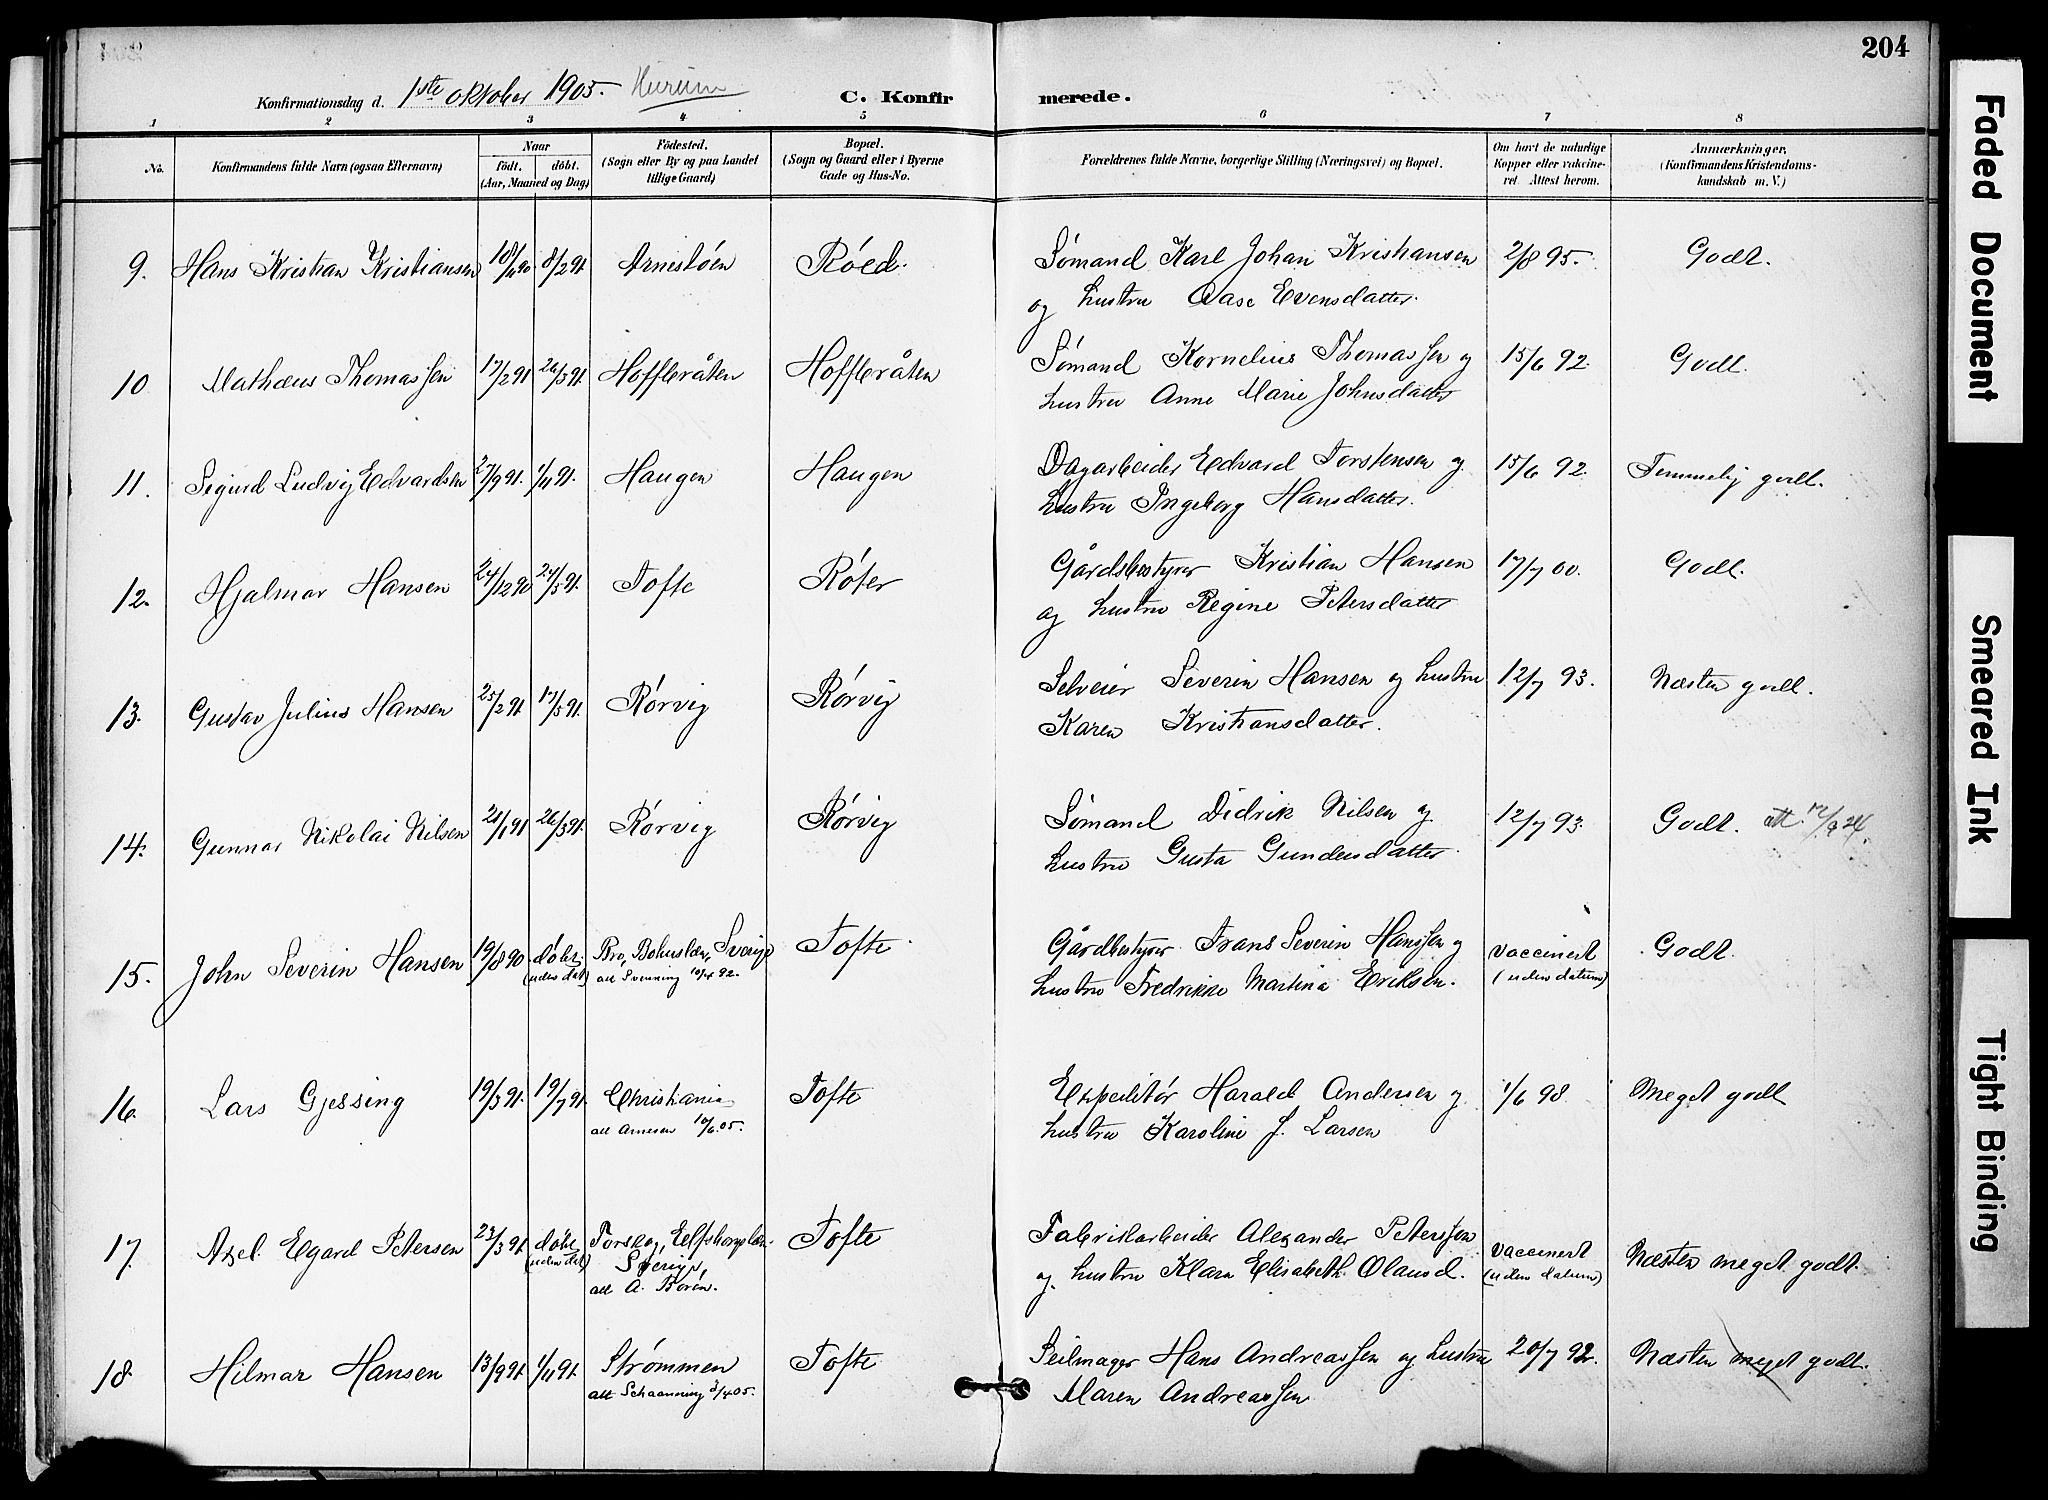 204
Konfirmationsdag d. 1ste oktober 1905. Hurum C. Konfirmerede.
1 2 3 4 5 6 7 8
No. Konfirmandens fulde Navn (ogsaa Efternavn) Naar født. døbt. (Aar, Maaned og Dag) Fødested. (Sogn eller By og paa Landet tillige Gaard) Bopæl. (Sogn og Gaard eller i Byerne Gade og Hus-No. Forældrenes fulde Navne, borgerlige Stilling (Næringsvei) og Bopæl. Om havt de naturlige Kopper eller vakcineret. Attest herom. Anmærkninger, (Konfirmandens Kristendomskundskab m. V.)
9. Hans Kristian Kristiansen 8/2 91. Arnestøen Røed. Sømand Karl Johan Kristiansen 2/8 95. Godt.
og hustru Aase Evensdatter.
10 Mathæus Thomassen 17/2 91 26/3 91. Hoffleråten Hoffleråten Sømand Kornelius Thomassen og 15/6 92. Godt.
hustru Anne Marie Johnsdatter
11. Sigurd Ludvig Edvardsen 27/9 91. 1/11 91. Haugen Haugen Dagarbeider Edvard Torstensen og 15/6 92. Temmelig godt.
hustru Ingeborg Hansdatter.
12. Hjalmar Hansen 24/12 90 24/5 91. Tofte Røter Gårdsbestyrer Kristian Hansen 17/7 00. Godt.
og hustru Regine Petersdatter
13. Gustav Julius Hansen 25/2 91. 17/5 91. Rørvig Rørvig Selveier Severin Hansen og hustru 12/7 93. Næsten godt.
Karen Kristiansdatter.
14. Gunnar Nikolai Nilsen 21/1 91 26/3 91. Rørvig Rørvig Sømand Didrik Nilsen og 12/7 93. Godt. att. 24.
hustru Gusta Gundersdatter.
15. John Severin Hansen 19/8 90 døbt. Bro, Bohuslän, Sverige Tofte Gårdbestyrer Frans Severin Hanssen og vaccinert Godt.
(uden dat) att Svenning 10/4 92. hustru Fredrikke Martina Eriksen. (uden datum)
16. Lars Gjessing 19/3 91. 19/7 91. Christiania Tofte Expeditør Harald Andersen og 1/6 98. Meget godt
att Arnesen 10/6 05. hustru Karoline J. Larsen
17. Axel Egard Petersen 23/3 91. døbt Torskog, Elfsborgslän Tofte Fabrikarbeider Alexander Peterssen vaccinert Næsten meget godt.
(uden dat) Sverige, og hustru Klara Elisabeth Olausd. (uden datum)
att A. Torén.
18. Hilmar Hansen 13/9 91. 1/11 91. Strømmen Tofte Seilmager Hans Andreassen og hustru 20/7 92. Næsten meget godt.
att Schaanning 3/4 05. Maren Andreassen
Faded Document
Smeared Ink
Tight Binding